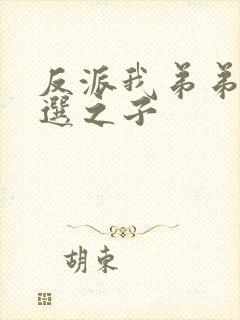 反派我弟弟
選之子
胡束